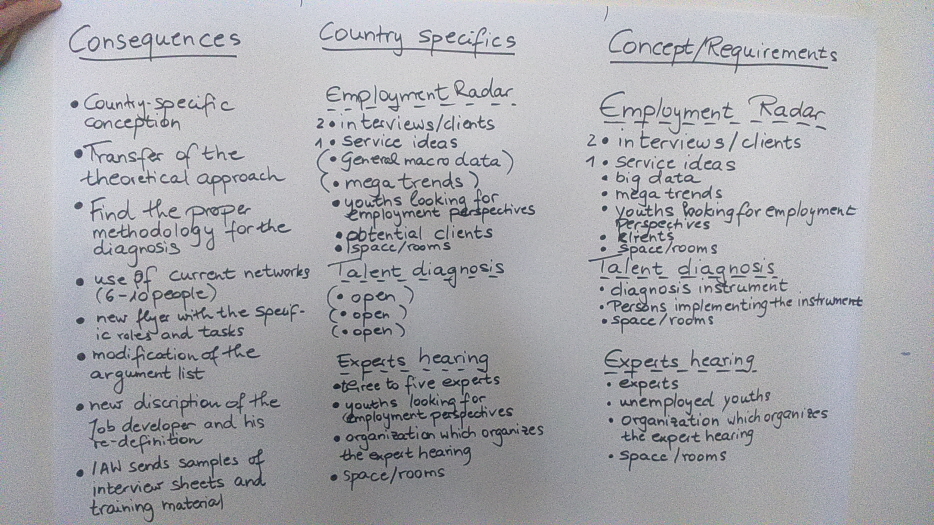 Consequences
• Country-specific
conception
• Transfer of the
theoretical approach
• Find the proper
methodology for the
diagnosis
• use of current networks
(6-10 people)
• new flyer with the specif-
ic roles and tasks
• modification of the
argument list
• new discription of the
Job developer and his
re-definition
• IAW sends samples of
interview sheets and
training material
Country specifics
Employment Radar
2 • interviews/clients
1 • service ideas
(• general macro data)
(• mega trends)
• youths looking for
employment perspectives
• potential clients
• space/rooms
Talent diagnosis
(• open)
(• open)
(• open)
Experts hearing
• three to five experts
• youths looking for
employment perspectives
• organization which organizes
the expert hearing
• space/rooms
Concept/Requirements
Employment Radar
2 • interviews/clients
1 • service ideas
• big data
• mega trends
• youths looking for employment
perspectives
• klients
• space/rooms
Talent diagnosis
• diagnosis instrument
• Persons implementing the instrument
• space/rooms
Experts hearing
• experts
• unemployed youths
• organization which organizes
the expert hearing
• space/rooms